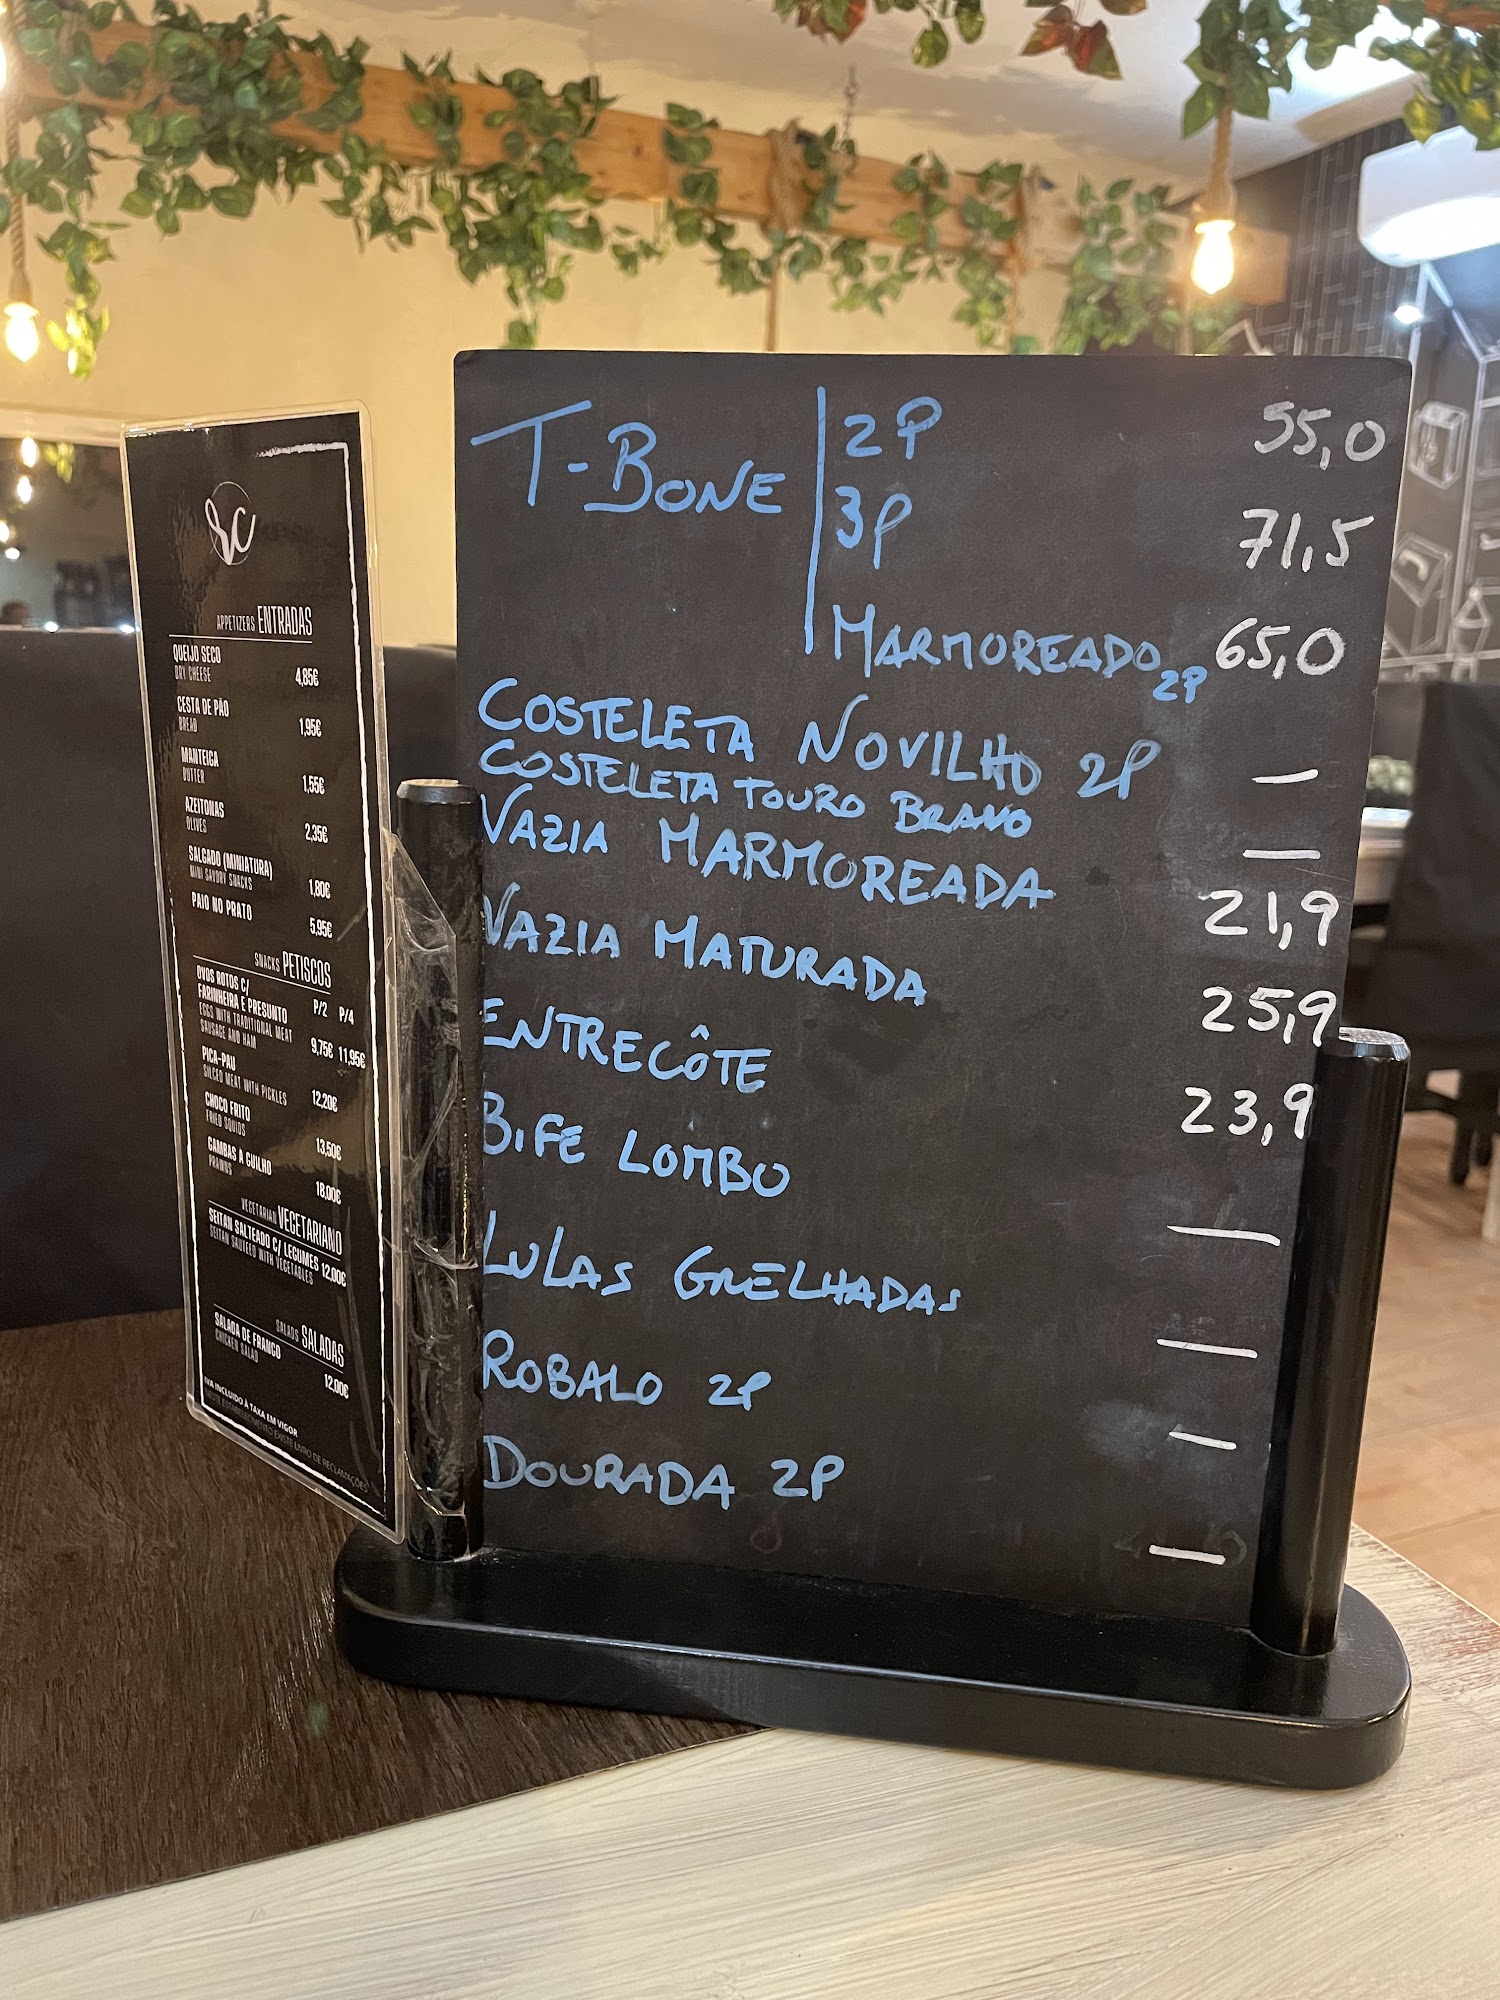 SC
APPETIZERS ENTRADAS
QUEIJO SECO
DRY CHEESE 4,85€
CESTA DE PÃO
BREAD 1,95€
MANTEIGA
BUTTER 1,55€
AZEITONAS
OLIVES 2,35€
SALGADO (MINIATURA)
MINI SAVORY SNACKS 1,80€
PAIO NO PRATO 5,95€
SNACKS PETISCOS
OVOS ROTOS C/
FARINHEIRA E PRESUNTO P/2 P/4
EGGS WITH TRADITIONAL MEAT
SAUSAGE AND HAM 9,75€ 11,95€
PICA-PAU
SLICED MEAT WITH PICKLES 12,20€
CHOCO FRITO
FRIED SQUIDS 13,50€
GAMBAS A GUILHO
PRAWNS 18,00€
VEGETARIAN VEGETARIANO
SEITAN SALTEADO C/ LEGUMES 12,00€
SEITAN SAUTEED WITH VEGETABLES
SALADS SALADAS
SALADA DE FRANGO
CHICKEN SALAD 12,00€
IVA INCLUIDO À TAXA EM VIGOR
NESTE ESTABELECIMENTO EXISTE LIVRO DE RECLAMAÇÕES
T-BONE 2P 55,0
3P 71,5
MARMOREADO 2P 65,0
COSTELETA NOVILHO 2P —
COSTELETA TOURO BRAVO —
VAZIA MARMOREADA 21,9
VAZIA MATURADA 25,9
ENTRECÔTE 23,9
BIFE LOMBO —
LULAS GRELHADAS —
ROBALO 2P —
DOURADA 2P —